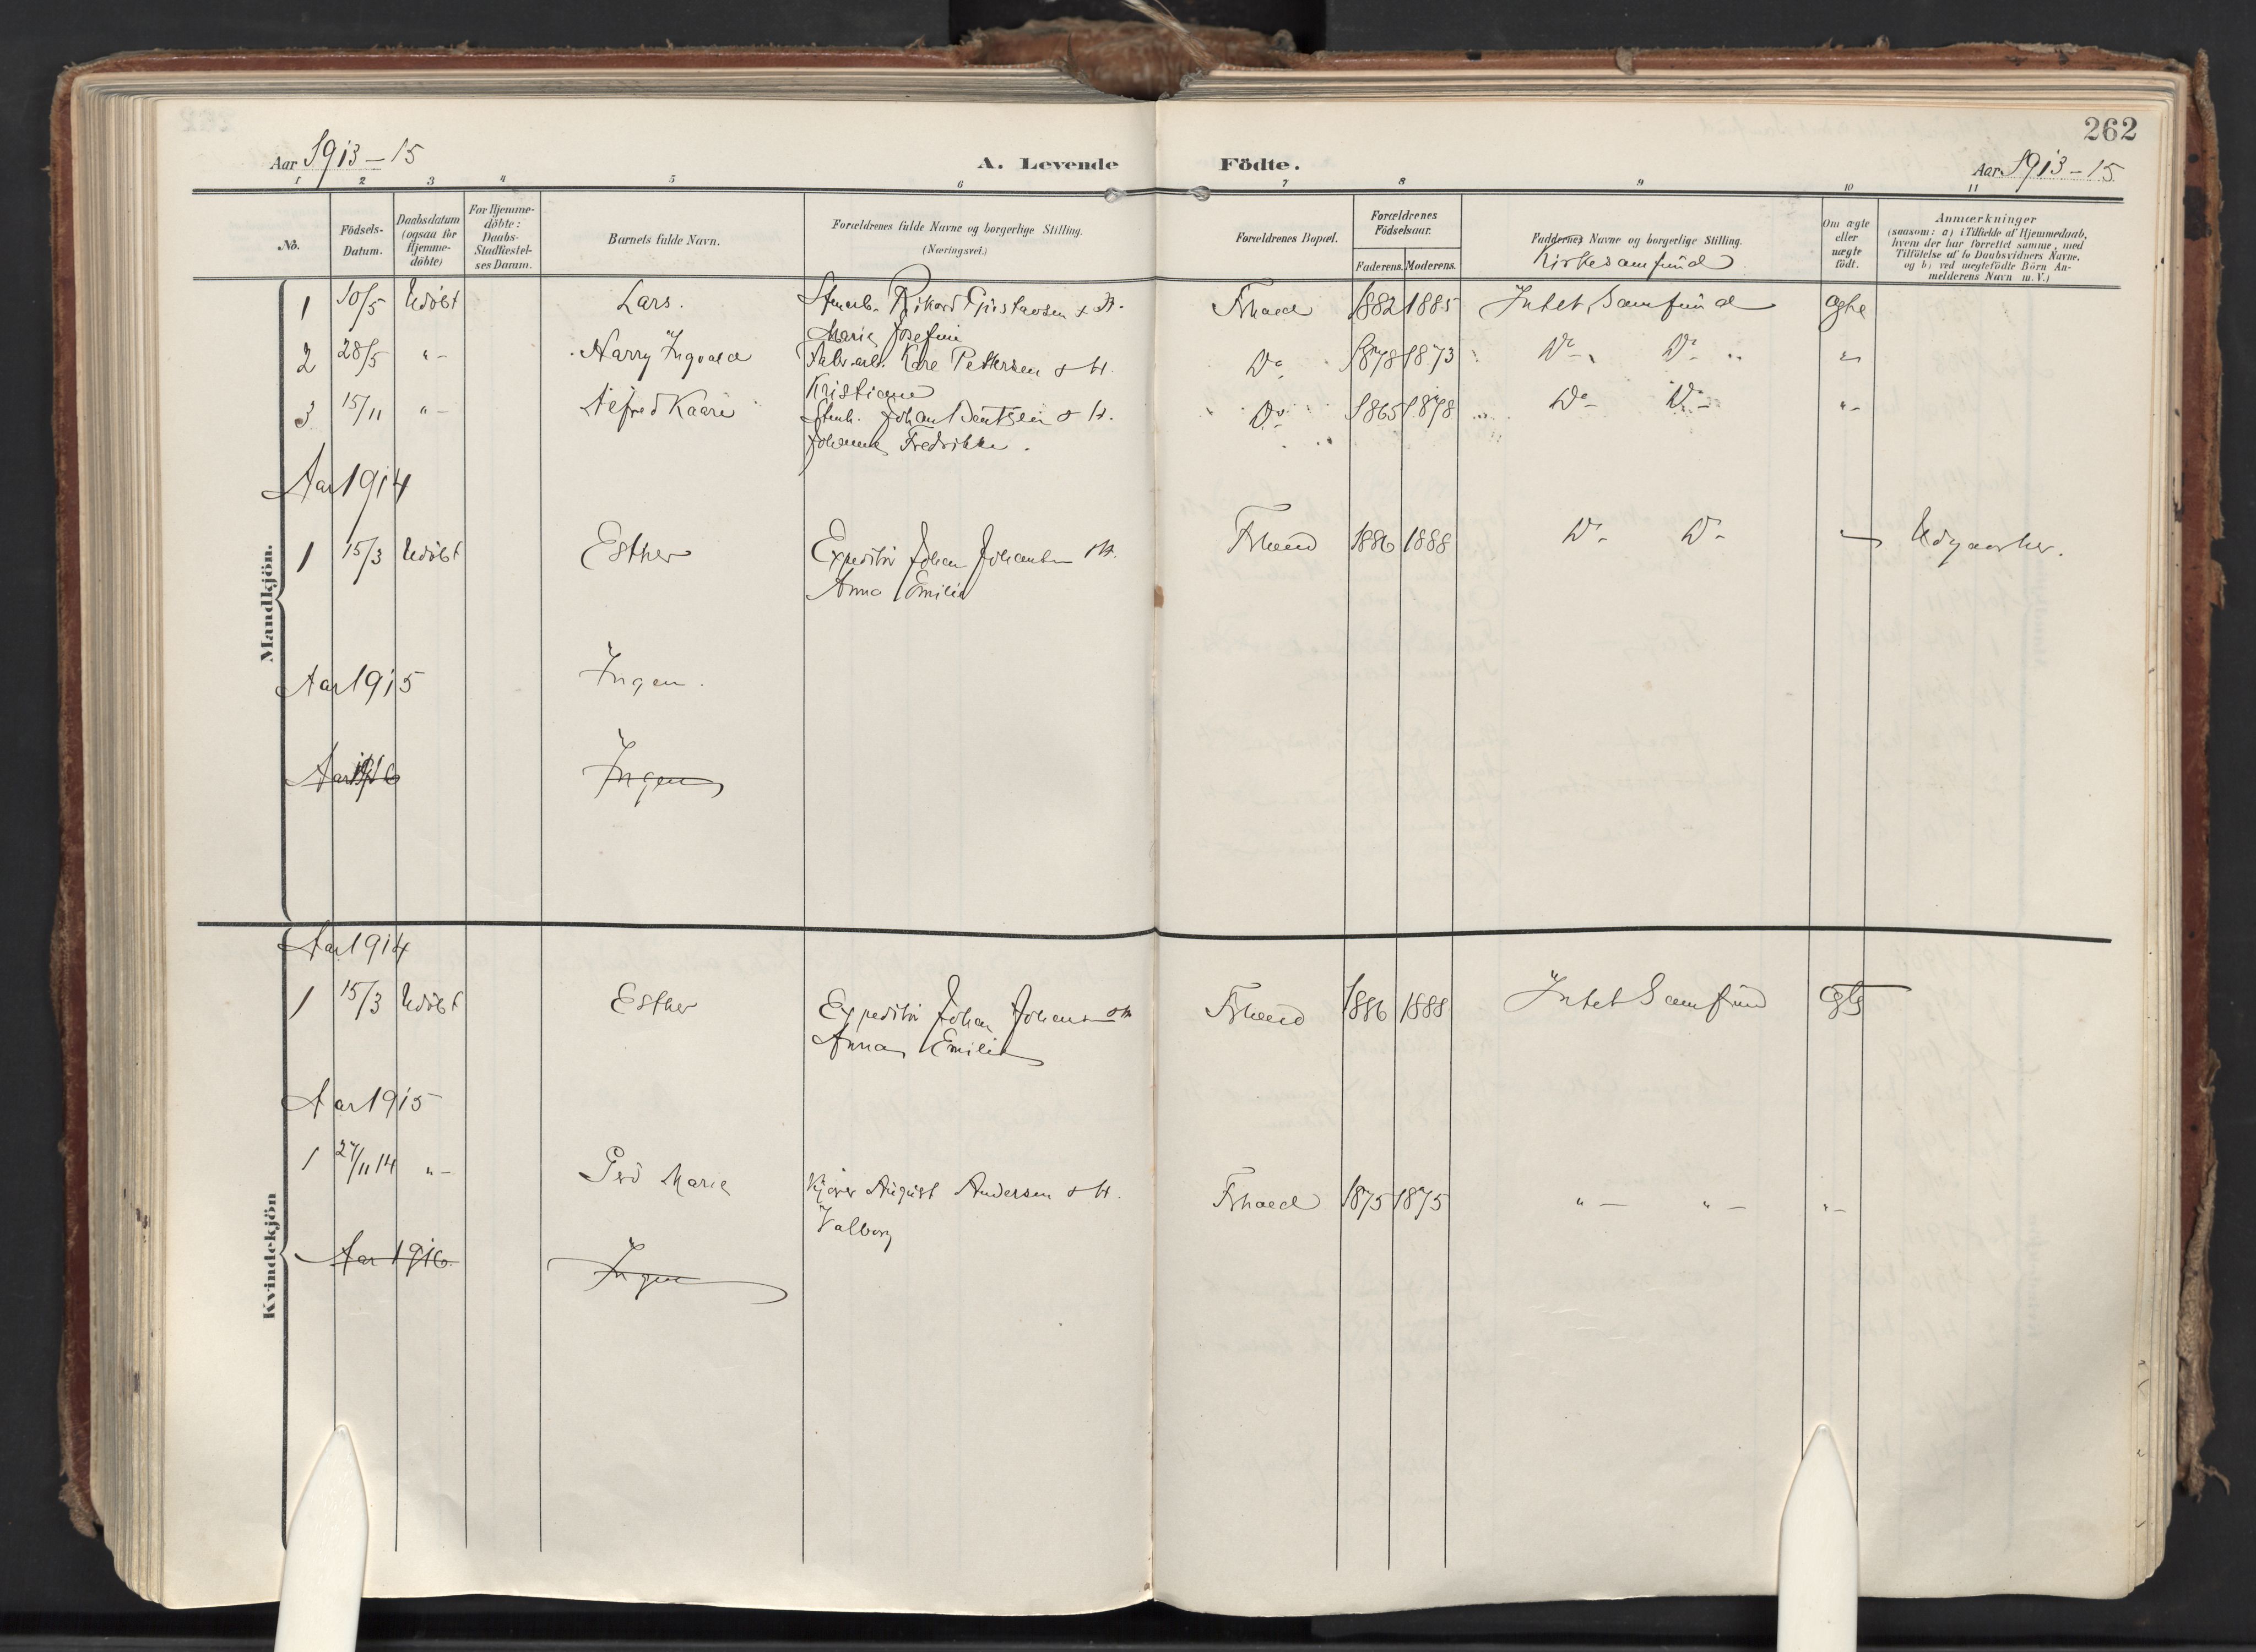 262
Aar 1913-15 A. Levende Födte. Aar 1913-15
1 2 3 4 5 6 7 8 9 10 11
No.
Födsels-Datum.
Daabsdatum (ogsaa for Hjemme-döbte)
For Hjemme-döbte: Daabs-Stadfæstel-ses Datum.
Barnets fulde Navn.
Forældrenes fulde Navne og borgerlige Stilling. (Næringsvei.)
Forældrenes Bopæl.
Forældrenes Födselsaar.
Faderens. Moderens.
Faddernes Navne og borgerlige Stilling.
Kirkesamfund
Om ægte eller uægte födt.
Anmærkninger
(saasom: a) i Tilfælde af Hjemmedaab,
hvem der har forrettet samme, med
Tilföielse af to Daabsvidners Navne,
og b) ved uegtefödte Börn An-
melderens Navn m. V.)
Mandkjön.
1 10/5 Udöbt Lars. Rikard Gustavsen & H. Fshald 1882 1885 Intet Samfund ægte
Marie Josefine
2 28/5 "- Harry Ingvald Fabr.arb. Kare Pettersen & H. Do 1878 1873 Do- Do- "-
Kristiane
3 15/11 "- Alfred Kaare Stenh. Johan Bentsen & H. Do- 1865 1878 Do- Do- "-
Johanne Fredrikke.
Aar 1914
1 15/3 Udöbt Esther Expeditör Johan Johansen & H. Fshald 1886 1888 Do- Do- - Udgaar her.
Anna Emilie
Aar 1915 Ingen.
Aar 1916 Ingen
Kvindekjön
Aar 1914
1 15/3 Udöbt Esther Expeditör Johan Johansen & H. Fshald 1886 1888 Intet Samfund ægte
Anna Emilie
Aar 1915
1 27/11 14 "- Gerd Marie Kjører August Andersen & H. Fshald 1875 1875 "- "- "-
Valborg
Aar 1916. Ingen